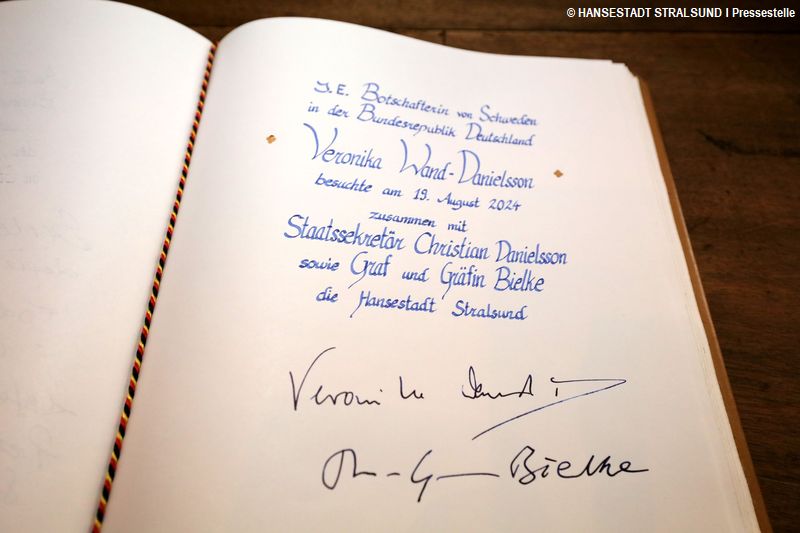 © HANSESTADT STRALSUND I Pressestelle
I. E. Botschafterin von Schweden
in der Bundesrepublik Deutschland
Veronika Wand-Danielsson
besuchte am 19. August 2024
zusammen mit
Staatssekretär Christian Danielsson
sowie Graf und Gräfin Bielke
die Hansestadt Stralsund
Veronika
Bielke